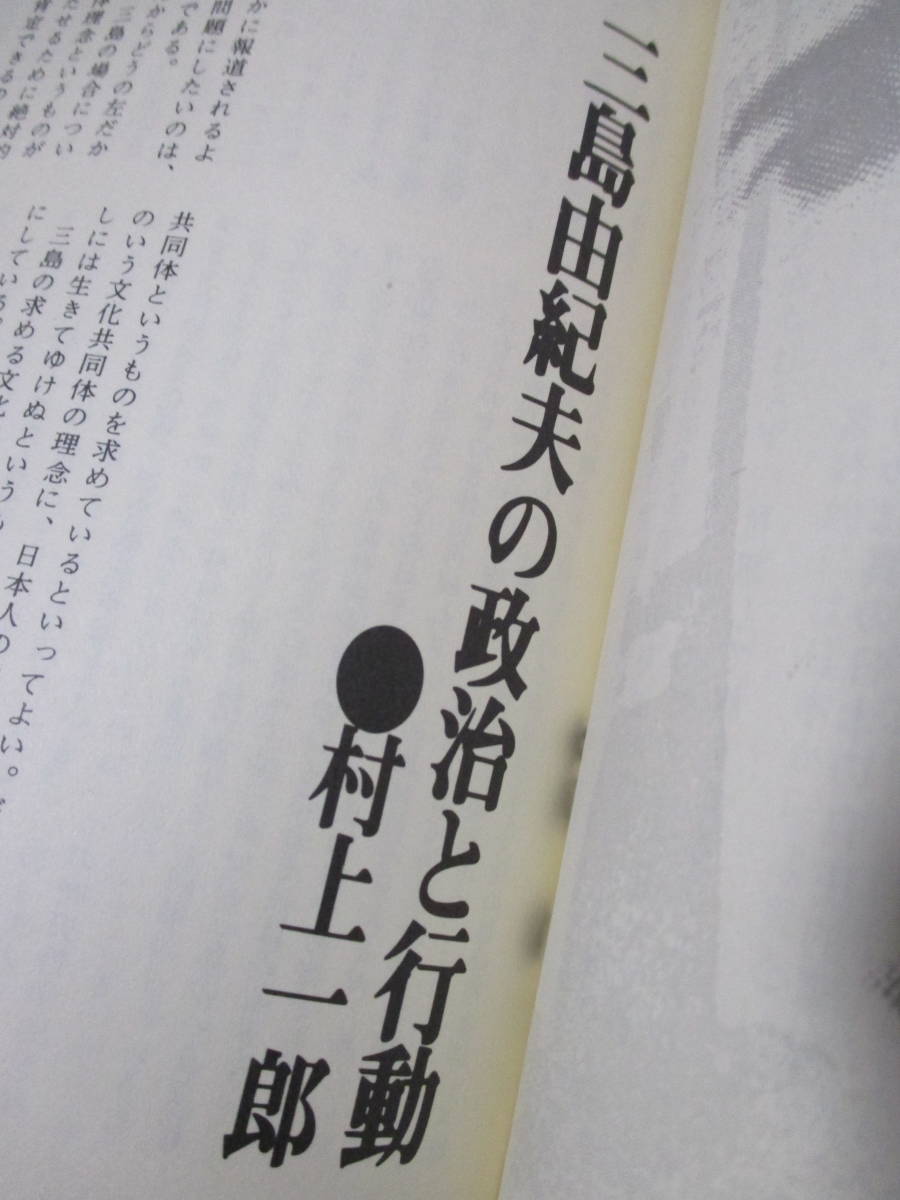 三島由紀夫の政治と行動
●村上一郎
かに報道されるよ
問題にしたいのは、
である。
からどうの左だか
三島の場合につい
理念というものが
たせるために絶対的
肯定できるの
共同体というものを求めているといってよい。
のいう文化共同体の理念に、日本人の
しには生きてゆけぬという
三島の求める文化
にしている